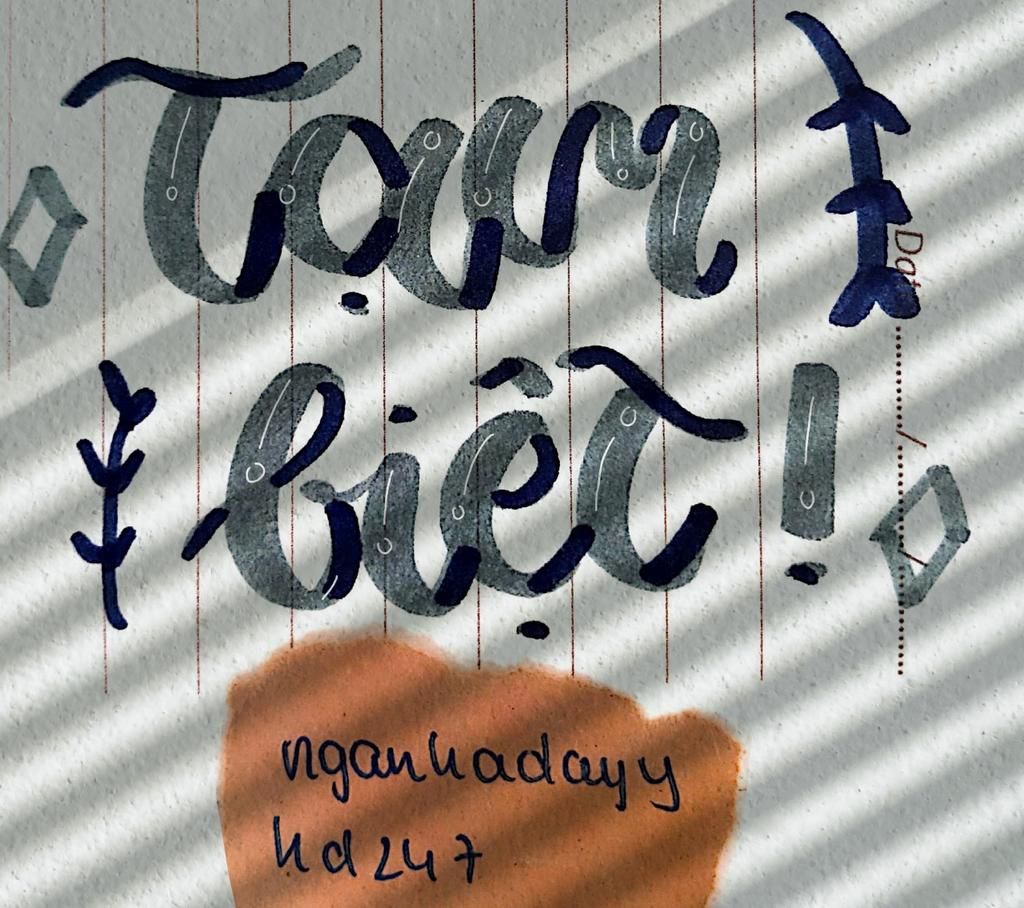 Tạm
biệt!
nganhadayy
hd247